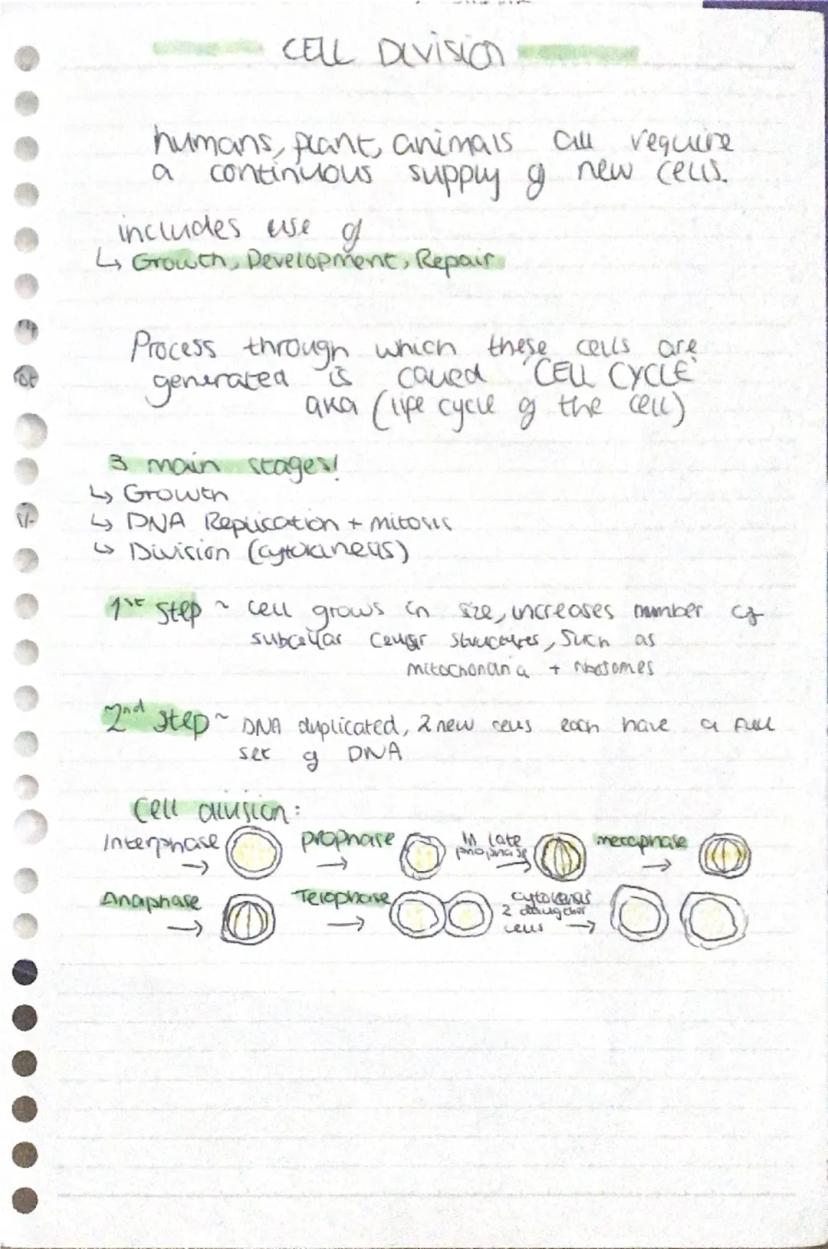 CELL DIVISION
humans, plant, animals all require
a continuous supply of new cells.
includes use of
↳ Growth, Development, Repair
Process through which these cells are
generated is called 'CELL CYCLE'
aka (life cycle of the cell)
3 main stages!
↳ Growth
↳ DNA Replication + mitosis
↳ Division (cytokinesis)
1st step ~ cell grows in size, increases number of
structures, such as
mitochondria + ribosomes
2nd step ~ DNA duplicated, 2 new cells each have a full
set of DNA
Cell division:
Interphase → prophase → in late → metaphase →
prophase
Anaphase → Telophase → 2 daughter
cells →